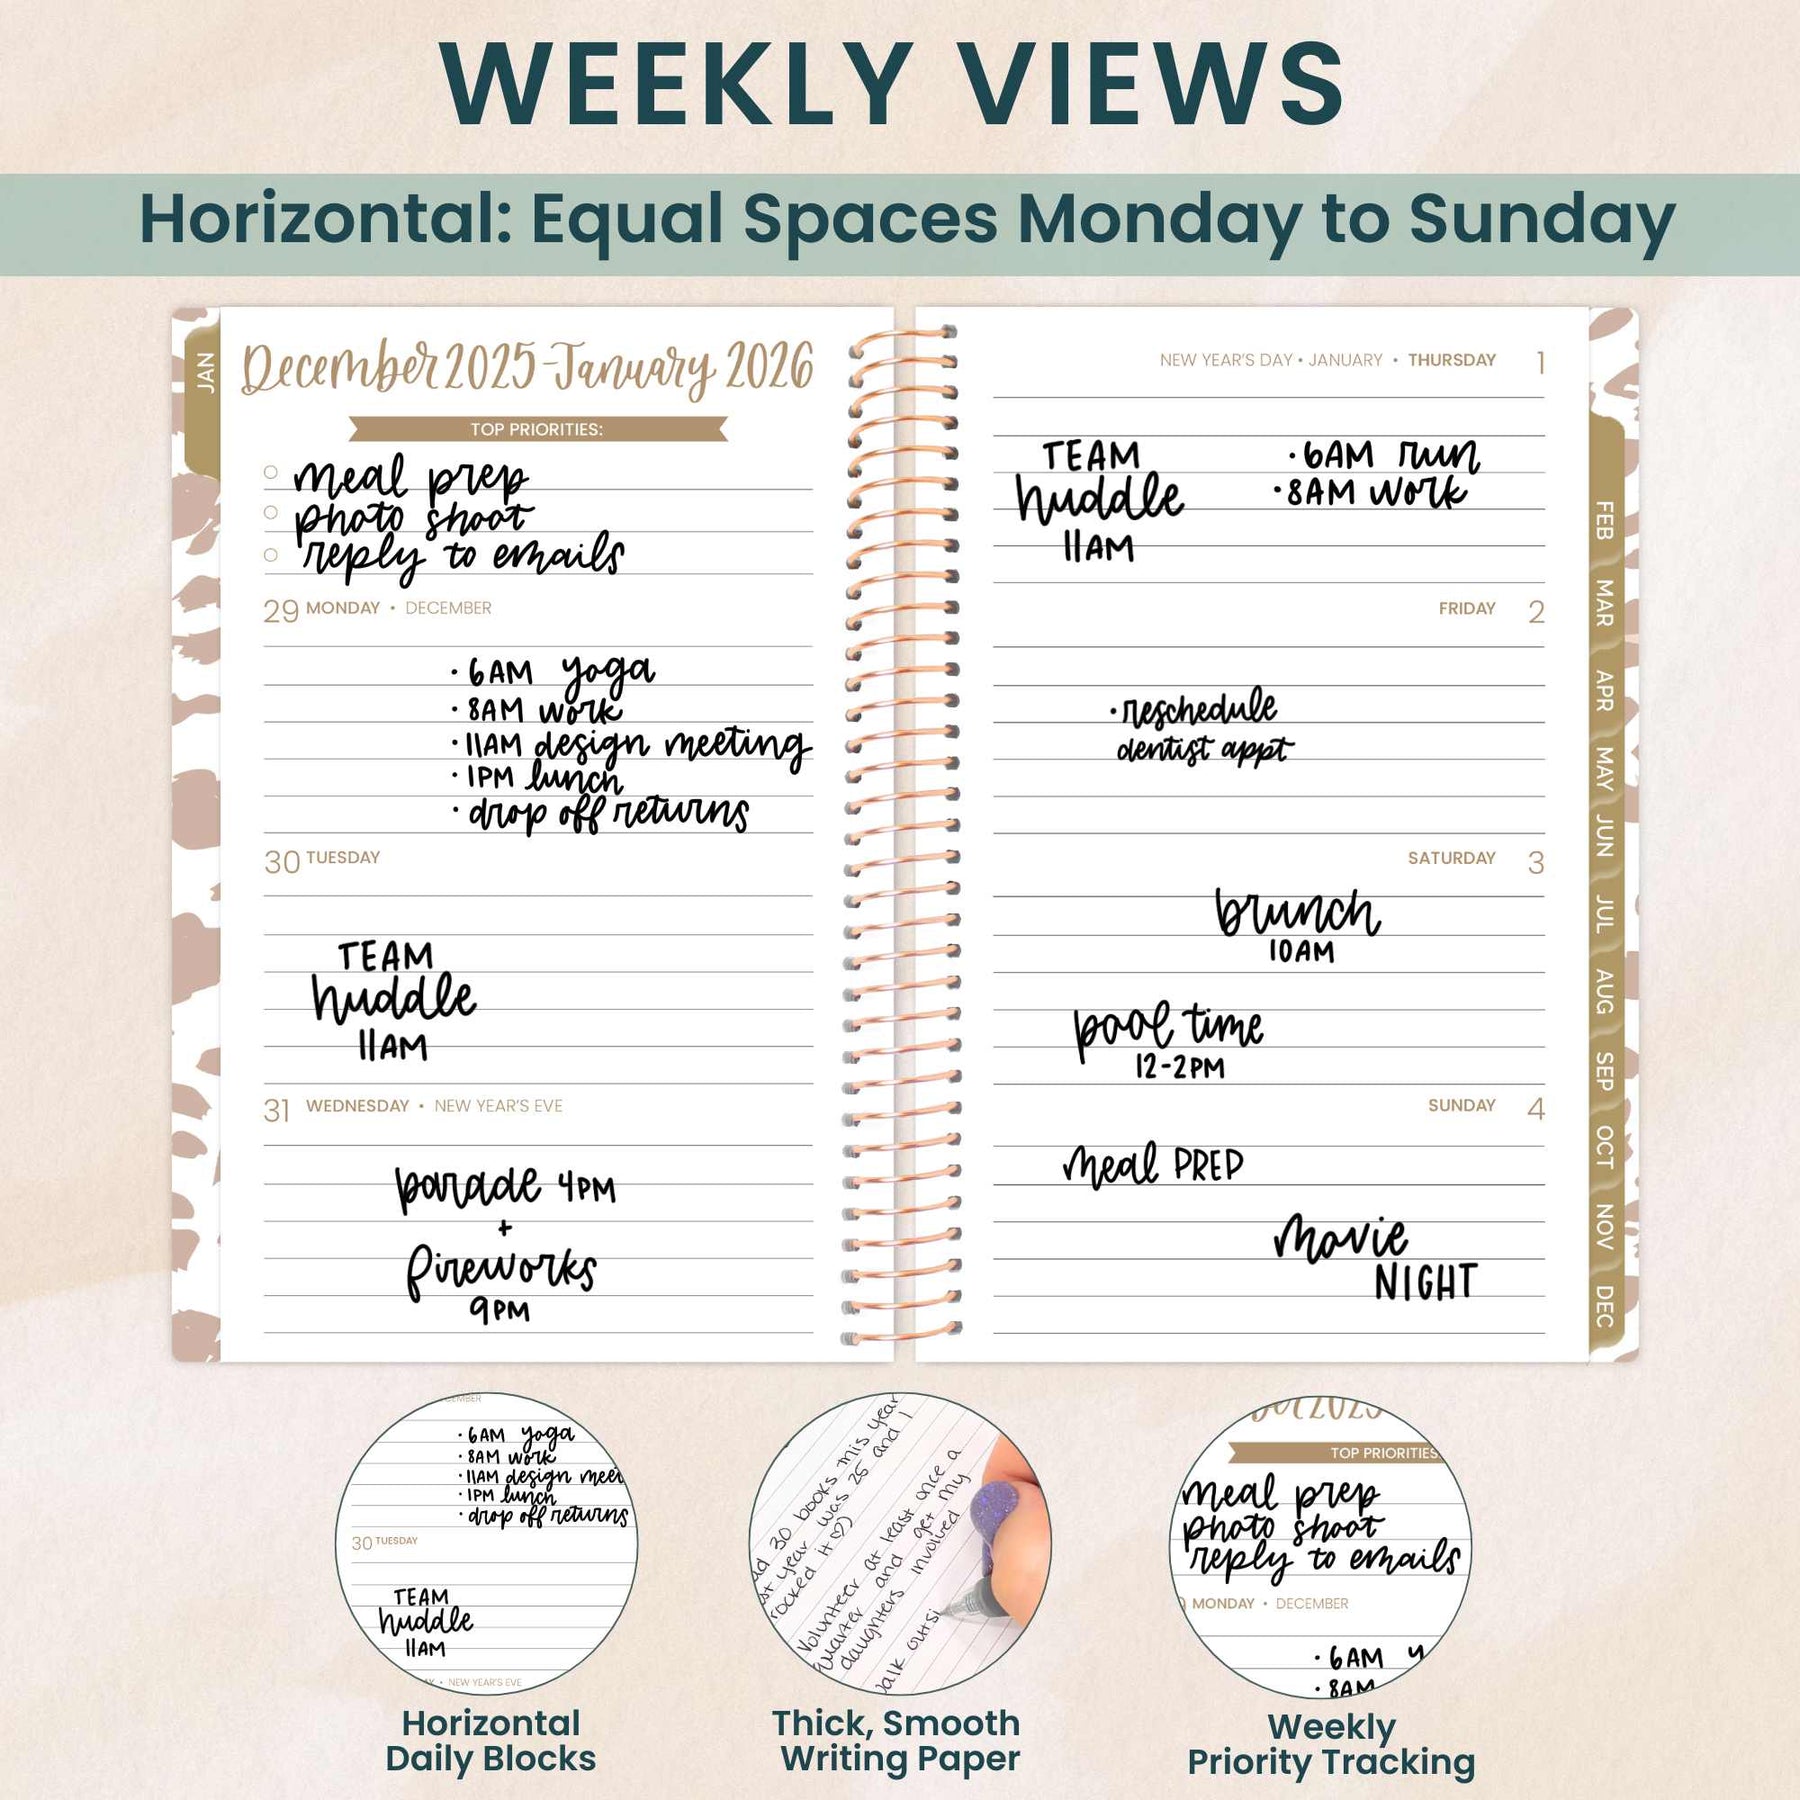 WEEKLY VIEWS
Horizontal: Equal Spaces Monday to Sunday
JAN
December 2025-January 2026
TOP PRIORITIES:
meal prep
photo shoot
reply to emails
29 MONDAY • DECEMBER
• 6AM yoga
• 8AM work
• 11AM design meeting
• 1PM lunch
• drop off returns
30 TUESDAY
TEAM
huddle
11AM
31 WEDNESDAY • NEW YEAR'S EVE
parade 4PM
+
fireworks
9PM
NEW YEAR'S DAY • JANUARY • THURSDAY 1
TEAM
huddle
11AM
• 6AM run
• 8AM work
FRIDAY 2
• reschedule
dentist appt
SATURDAY 3
brunch
10AM
pool time
12-2PM
SUNDAY 4
meal PREP
movie
NIGHT
FEB
MAR
APR
MAY
JUN
JUL
AUG
SEP
OCT
NOV
DEC
• 6AM yoga
• 8AM work
• 11AM design meet
• 1PM lunch
• drop off returns
30 TUESDAY
TEAM
huddle
11AM
• NEW YEAR'S EVE
Horizontal
Daily Blocks
30 books this year
year was 25 and I
rocked it ♡)
Volunteer at least once a
quarter and get my
daughters involved
walk outsi
Thick, Smooth
Writing Paper
TOP PRIORITIES
meal prep
photo shoot
reply to emails
MONDAY • DECEMBER
• 6AM y
• 8AM
Weekly
Priority Tracking